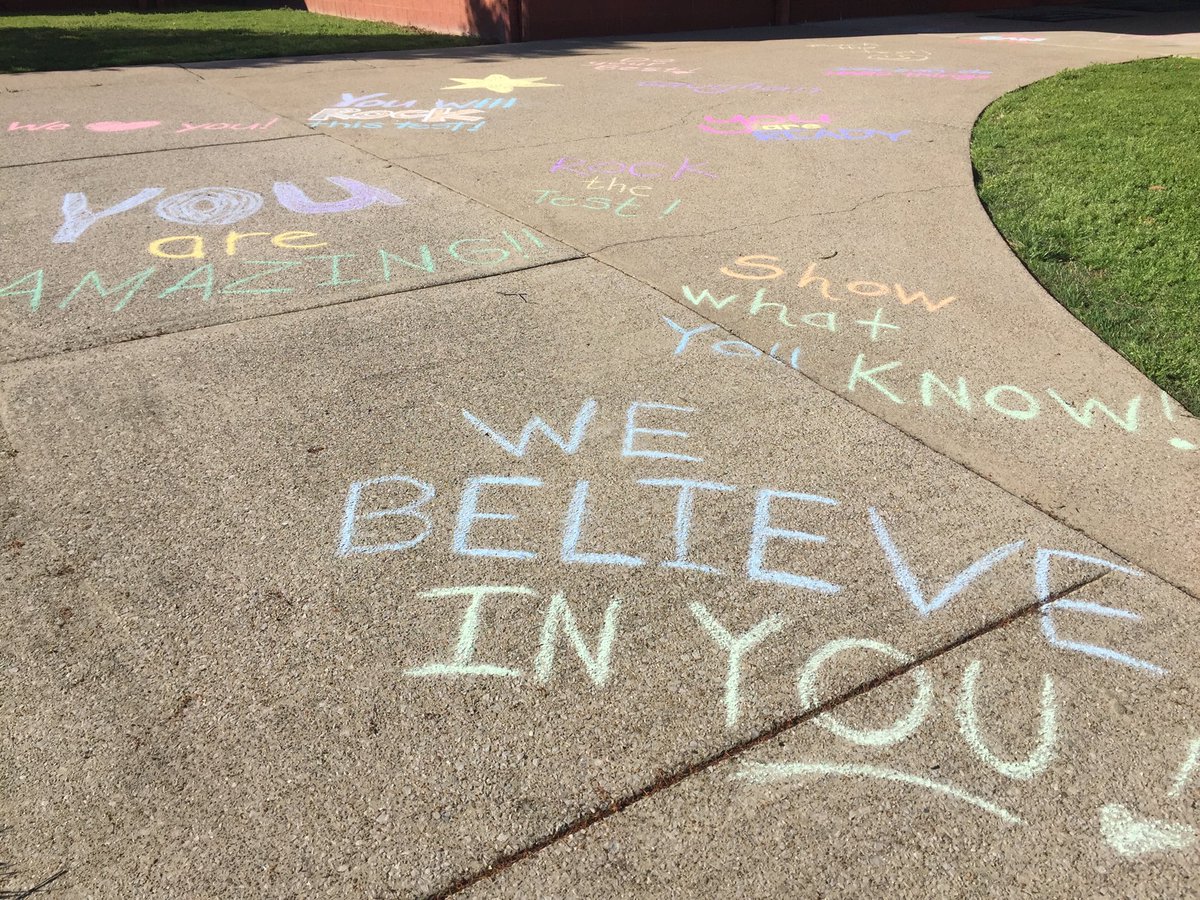 We ♥ you!
You will
ROCK
this test!
YOU
are
AMAZING!!
YOU
are
READY
ROCK
the
Test!
Show
what
You KNOW!
WE
BELIEVE
IN YOU!